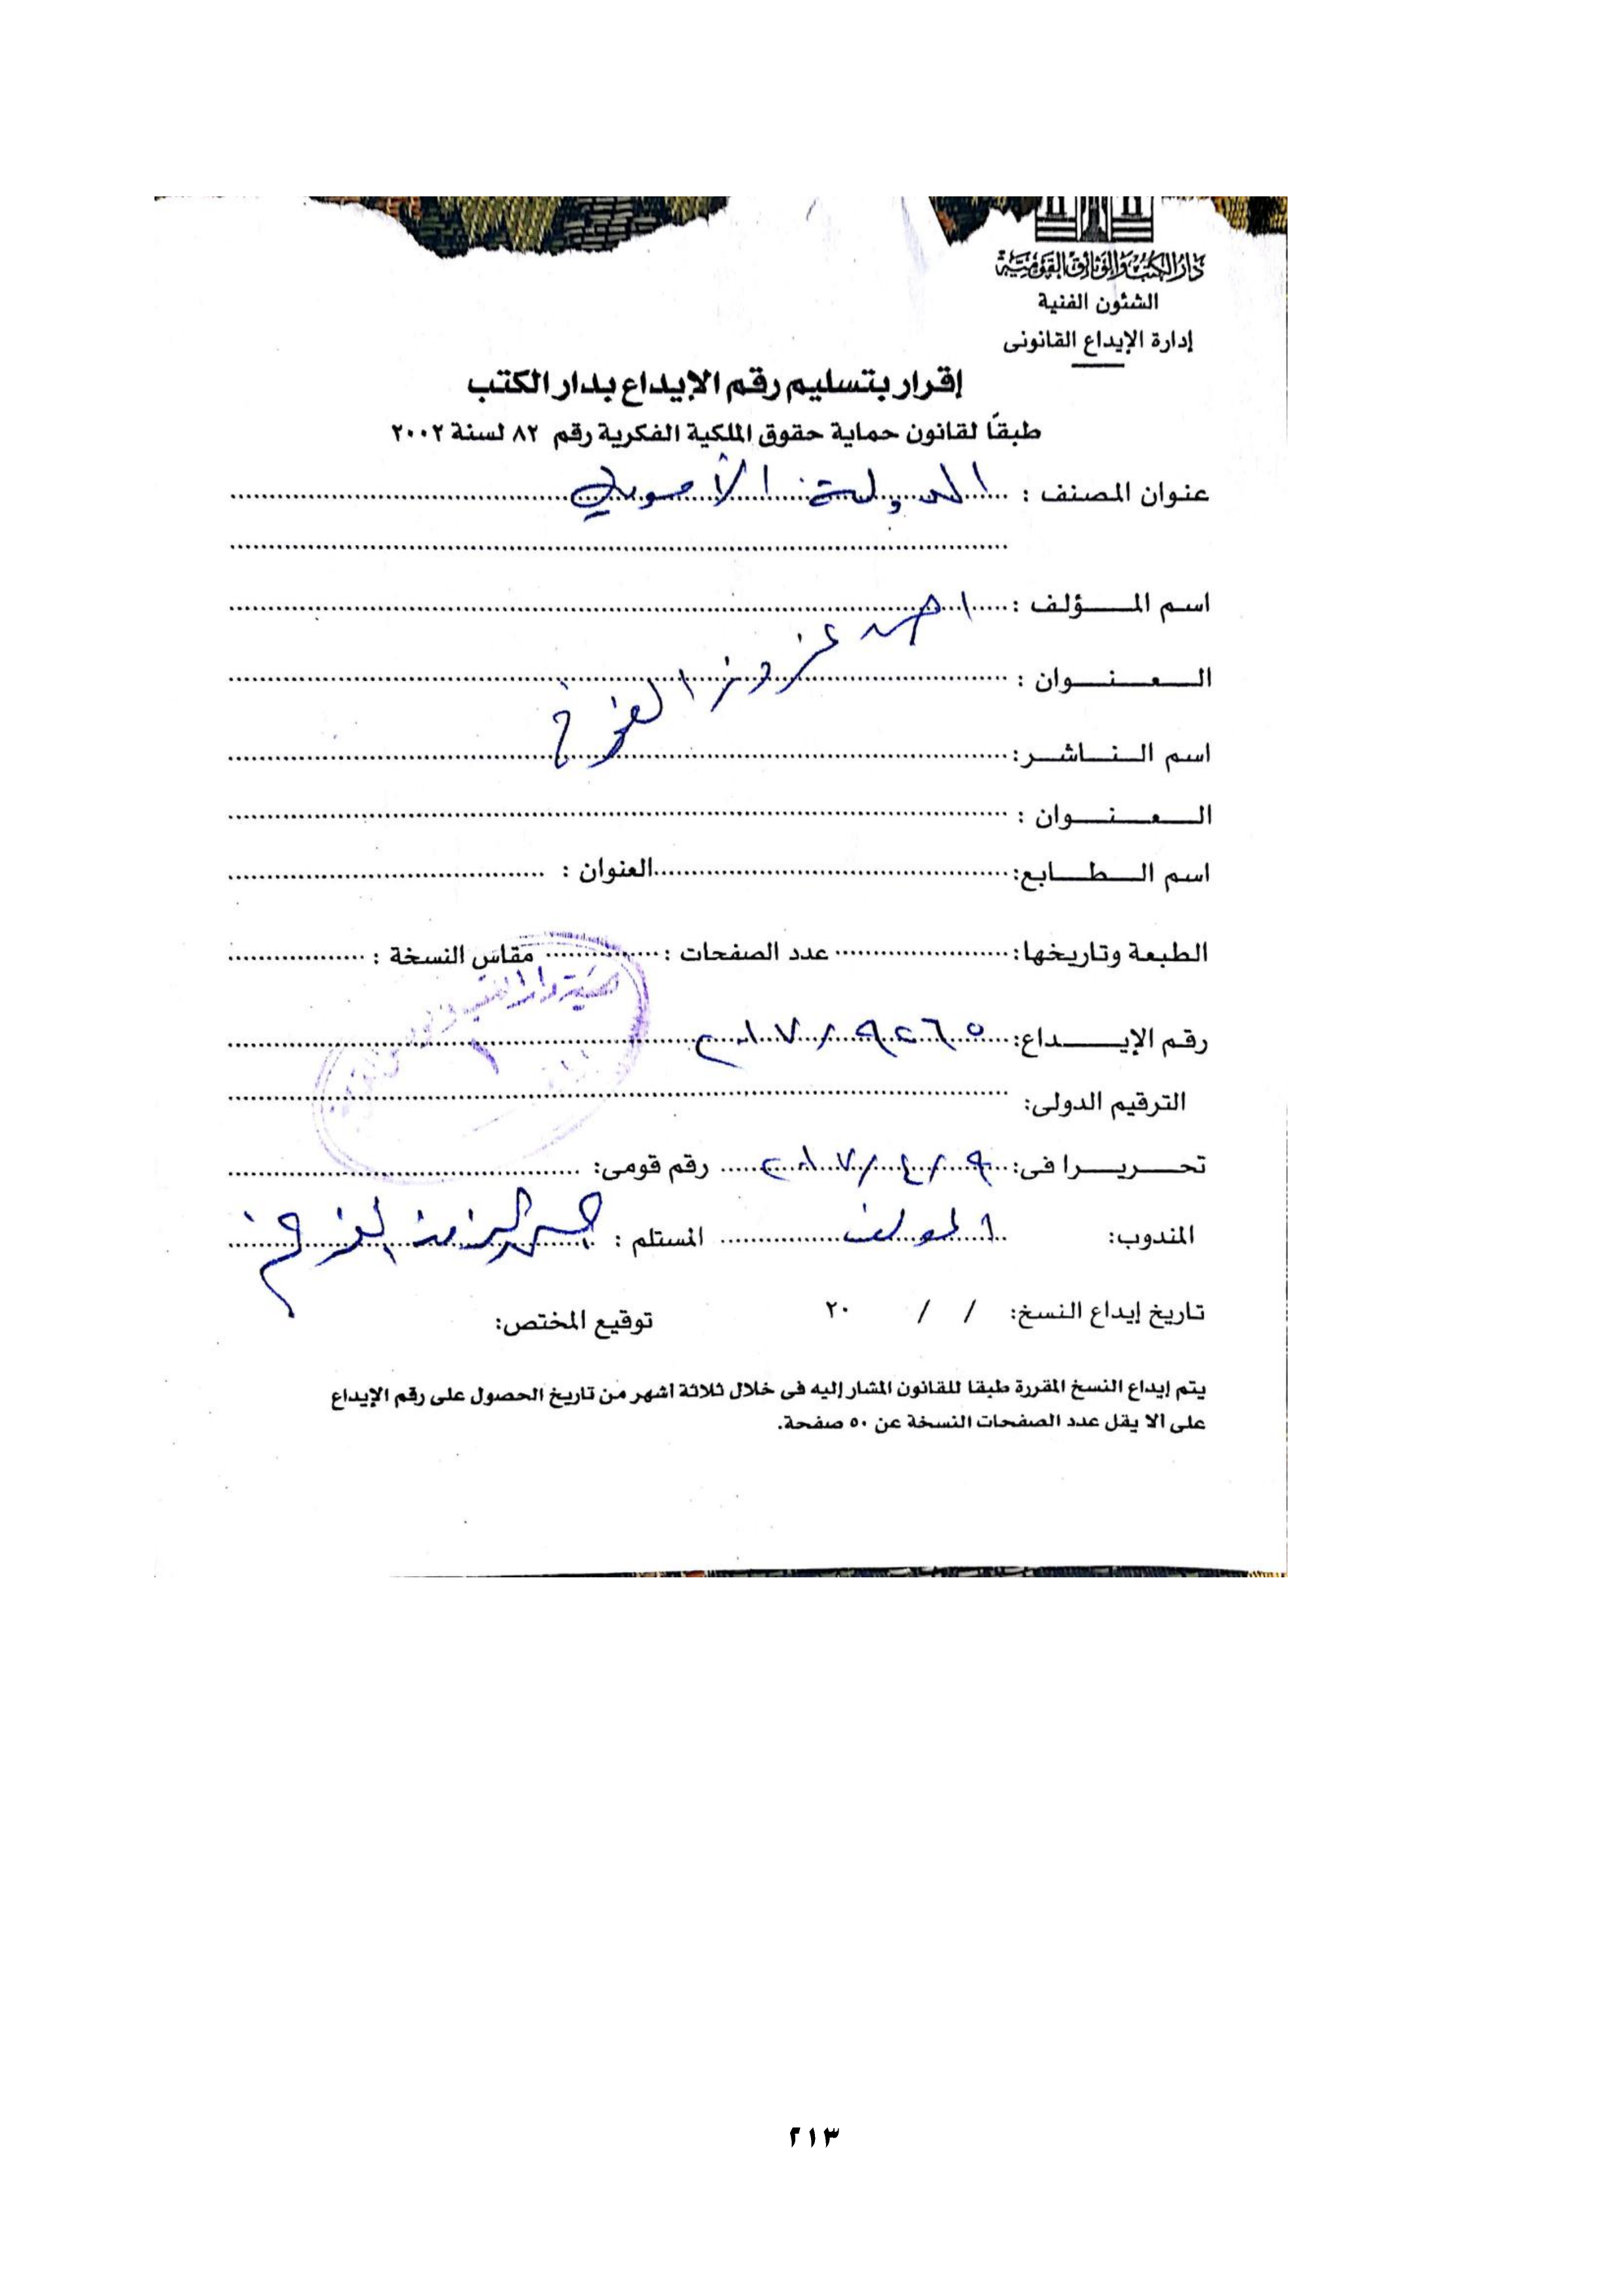 دار الكتب والوثائق القومية
الشئون الفنية
إدارة الإيداع القانونى
إقرار بتسليم رقم الإيداع بدار الكتب
طبقًا لقانون حماية حقوق الملكية الفكرية رقم ٨٢ لسنة ٢٠٠٢
عنوان المصنف : الدولة الأموية
اسم المؤلف : احمد عزوز الفرخ
العنوان :
اسم الناشر:
العنوان :
اسم الطابع: العنوان :
الطبعة وتاريخها: عدد الصفحات : مقاس النسخة :
رقم الإيداع: ٩٢٦٥ / ٢٠١٧
الترقيم الدولى:
تحريرا فى: ٩ / ٤ / ٢٠١٧ رقم قومى:
المندوب: المؤلف المستلم :
تاريخ إيداع النسخ: / / ٢٠ توقيع المختص:
يتم إيداع النسخ المقررة طبقا للقانون المشار إليه فى خلال ثلاثة اشهر من تاريخ الحصول على رقم الإيداع
على الا يقل عدد الصفحات النسخة عن ٥٠ صفحة.
٢١٣